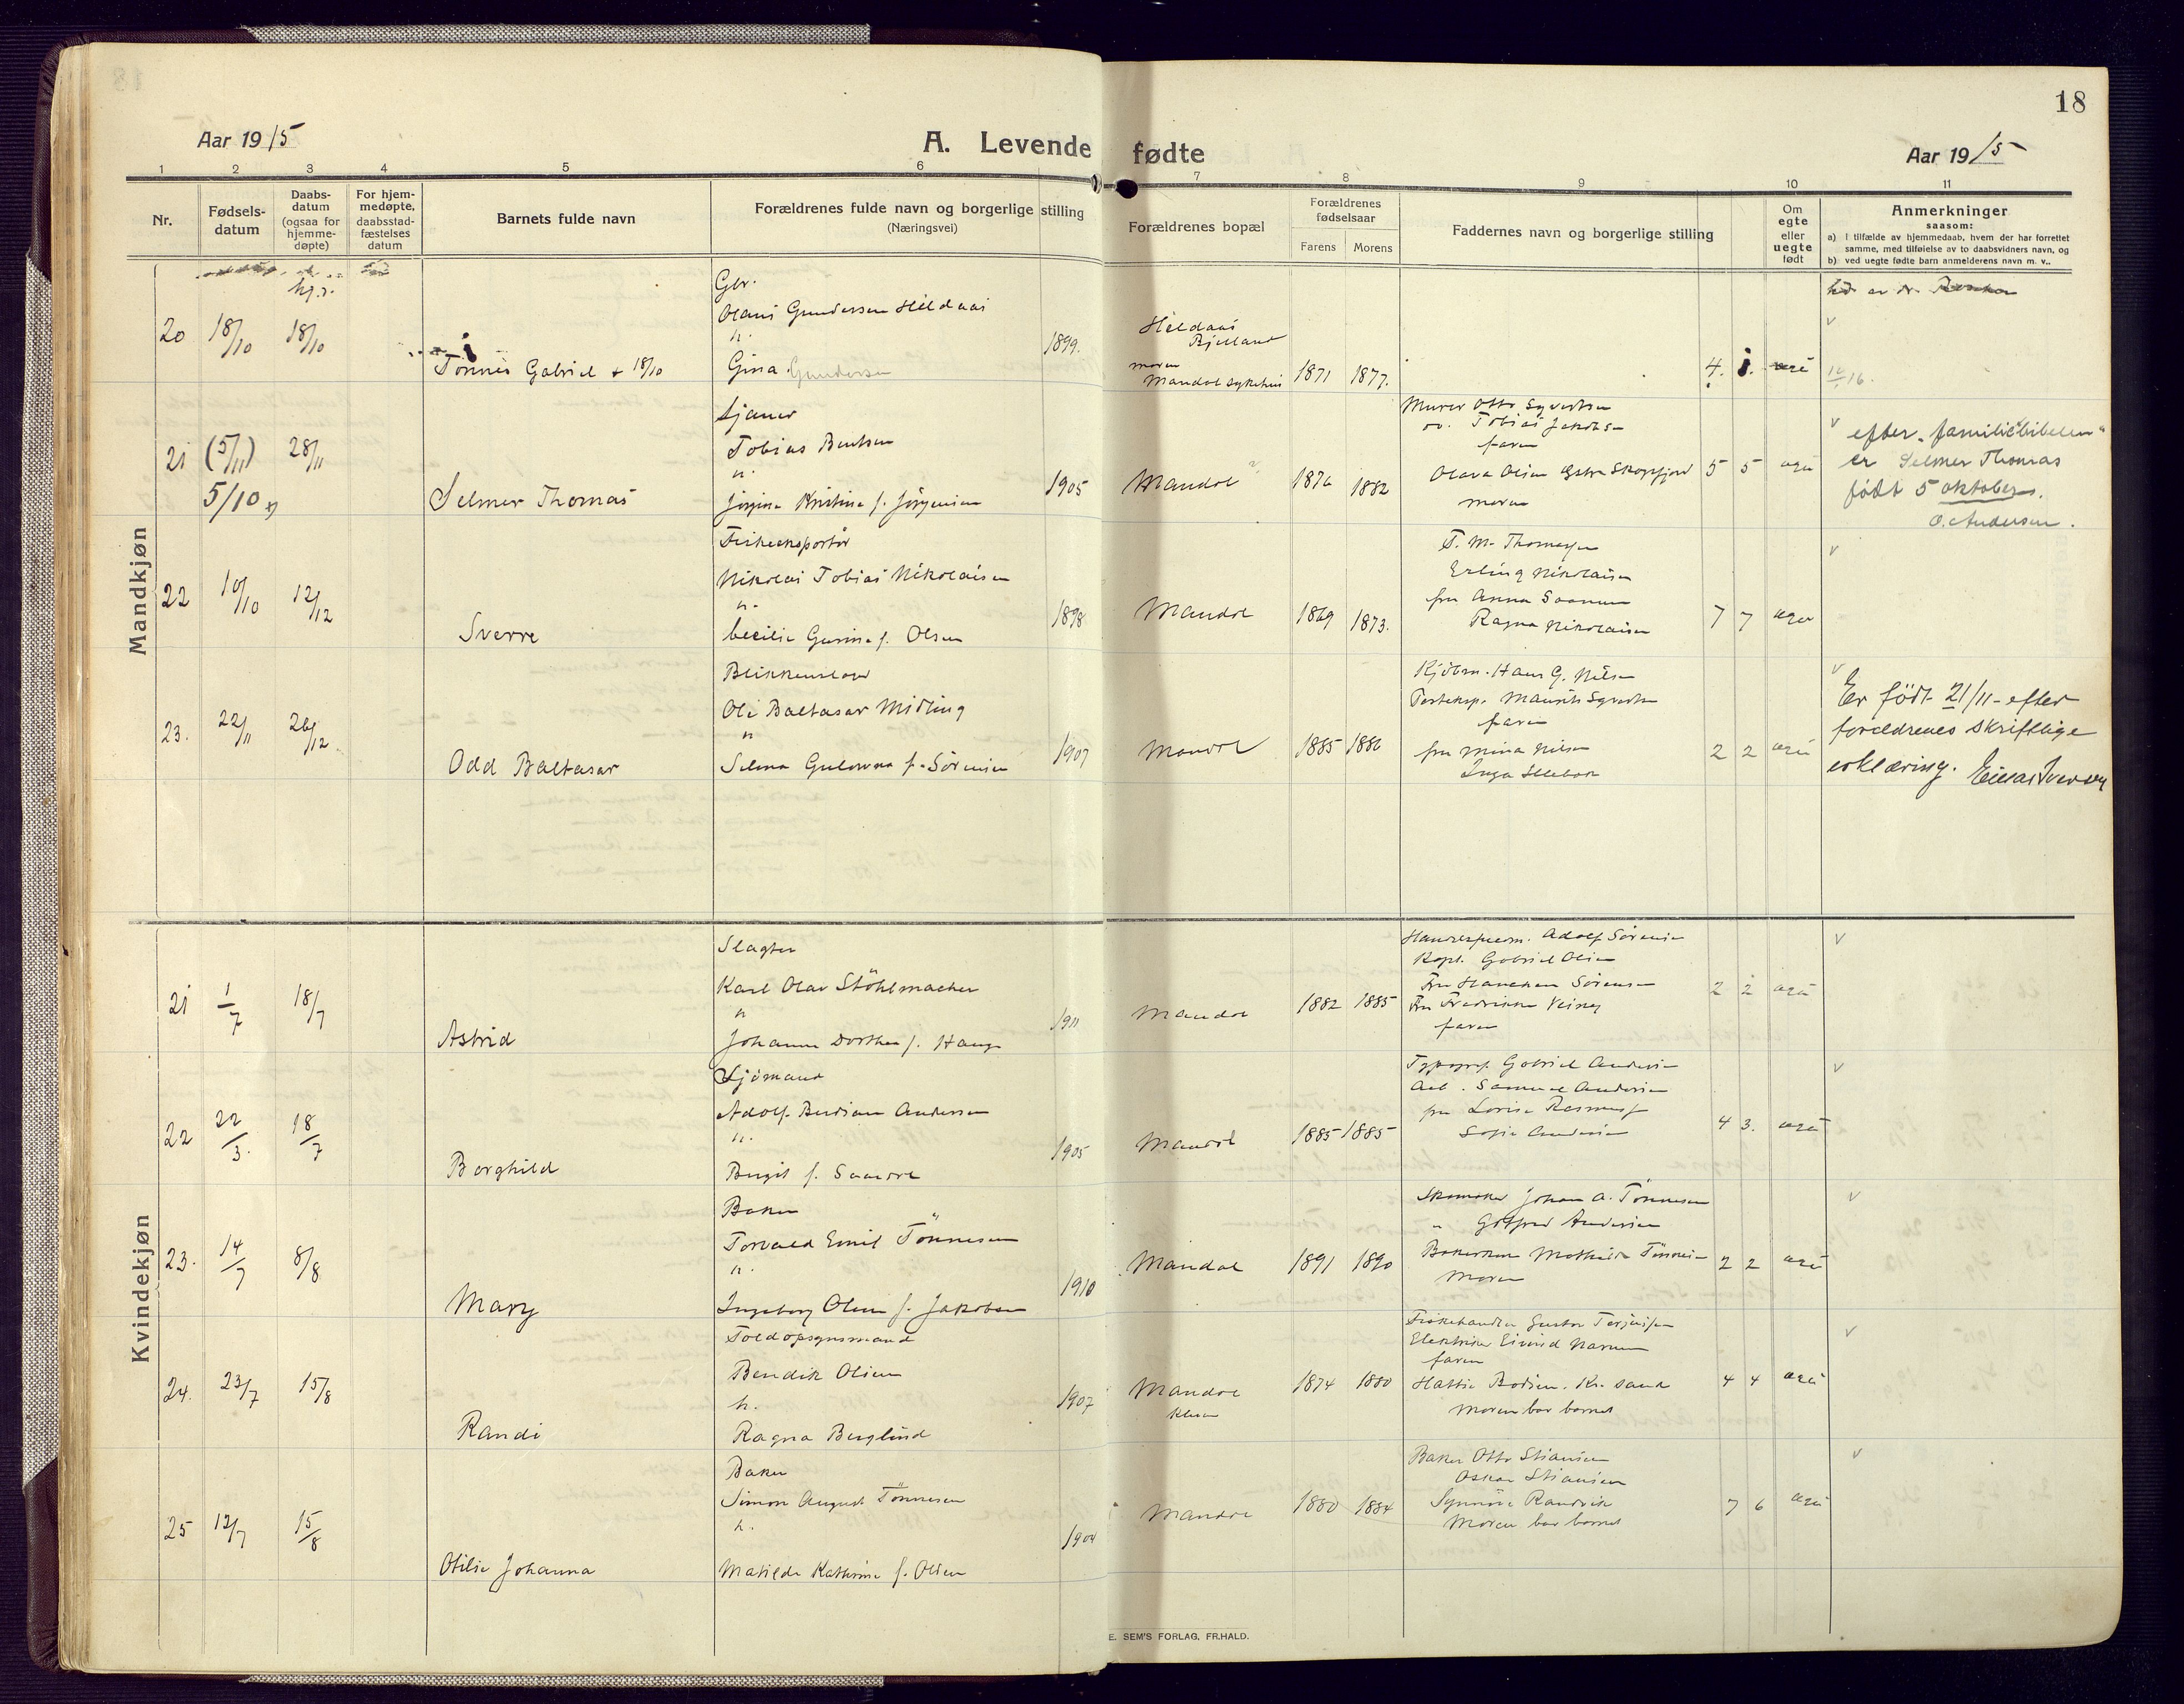 18
Aar 1915
A. Levende fødte
Aar 1915
1 2 3 4 5 6 7 8 9 10 11
Nr.
Fødsels-
datum
Daabs-
datum
(ogsaa for
hjemme-
døpte)
For hjem-
medøpte,
daabsstad-
fæstelses
datum
Barnets fulde navn
Forældrenes fulde navn og borgerlige stilling
(Næringsvei)
Forældrenes bopæl
Forældrenes
fødselsaar
Farens Morens
Faddernes navn og borgerlige stilling
Om
egte
eller
uegte
født
Anmerkninger
saasom:
a) I tilfælde av hjemmedaab, hvem der har forrettet
samme, med tilføielse av to daabsvidners navn, og
b) ved uegte fødte barn anmelderens navn m. v..
Mandkjøn
20 18/10 18/10
Tønnes Gabriel + 18/10
Gbr.
Olaus Gundersen Heldaas
h.
Gina Gundersen
1899.
Heldaas
Bjelland
moren
Mandal sykehus
1871 1877.
4.
21 (5/11) 28/11
5/10
Selmer Thomas
Sjauer
Tobias Bentsen
h.
Jørgine Kristine f. Jørgensen
1905
Mandal
1876 1882
Murer Otto Syvertsen
Tobias Jakobsen
faren
Olava Olsen Skogsfjord
moren
5 5 egte
efter "familiebibelen"
er Selmer Thomas
født 5 oktober.
O. Andersen.
22 10/10 12/12
Sverre
Fiskeeksportør
Nikolai Tobias Nikolaisen
h.
Cecilie Gurine f. Olsen
1898
Mandal
1869 1873.
T. M. Thomassen
Erling Nikolaisen
fru Anna Saanum
Ragna Nikolaisen
7 7 egte
23. 22/11 26/12
Odd Baltasar
Blikkenslager
Ole Baltasar Midling
h
Selma Gulowna f. Sørensen
1907
Mandal
1885 1886
Kjøbm. Hans G. Nilsen
Posteksp. Maurits Syvertsen
faren
fru Mina Nilsen
Inga Ellebak
2 2 egte
Er født 21/11 - efter
forældrenes skriftlige
erklæring. Einar Iversen
Kvindekjøn
21 1/7 18/7
Astrid
Slagter
Karl Olav Stöhlmacher
h
Johanne Dorthea f. Hauge
1911
Mandal
1882 1885
Adolf Sørensen
Kapt. Gabriel Olsen
Fru Hanchen Sørensen
Fru Fredrikke
faren
2 2 egte
22 22/3. 18/7
Borghild
Sjømand
Adolf Andersen
h.
Birgit f. Saanre
1905
Mandal
1885 1885
Typogr. Gabriel Andersen
Arb. Samuel Andersen
fru Lovise Rasmussen
Sofie Andersen
4 3. egte
23. 14/7 8/8
Mary
Baker
Torvald Emil Tönnesen
h.
Ingeborg Olene f. Jakobsen
1910
Mandal
1891 1890
Skomaker Johan A. Tönnesen
" Gotfred Andersen
Mathilde Tönnesen
Moren
2 2 egte
24. 23/7 15/8
Randi
Toldopsynsmand
Bendik Olsen
h.
Ragna Berglund
1907
Mandal
1874 1880
Fiskehandler Gustav Terjesen
Elektriker Eivind
faren
Hattie Bodsen. Kr. sand
Moren bar barnet
4 4 egte
25 12/7 15/8
Otilie Johanna
Baker
Simon August Tönnesen
h.
Matilde Kathrine f. Olsen
1904
Mandal
1880 1884
Baker Otto Stiansen
Oskar Stiansen
Synnöve Randvik
Moren bar barnet
7 6 egte
E. SEM'S FORLAG, FR.HALD.